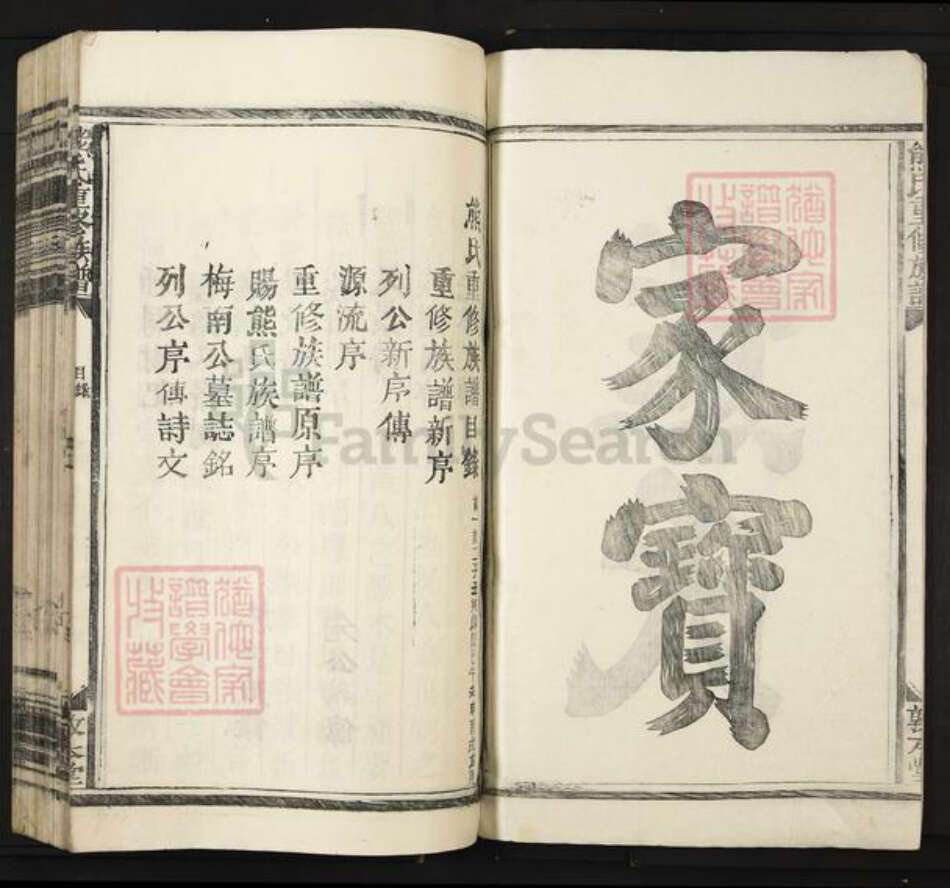 家寶
熊氏重修族譜
敦本堂
熊氏重修族譜目錄
重修族譜新序
列公新序傳
源流序
重修族譜原序
賜熊氏族譜序
梅南公墓誌銘
列公序傳詩文
熊氏重修族譜
目錄
敦本堂
譜學會
藏
FamilySearch